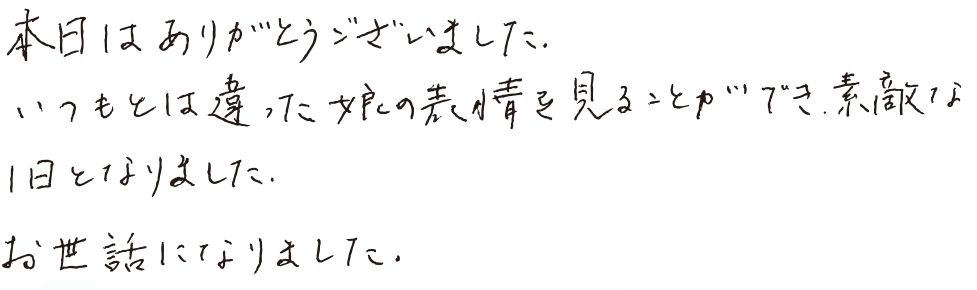 本日はありがとうございました.
いつもとは違った娘の表情を見ることができ.素敵な
1日となりました.
お世話になりました.